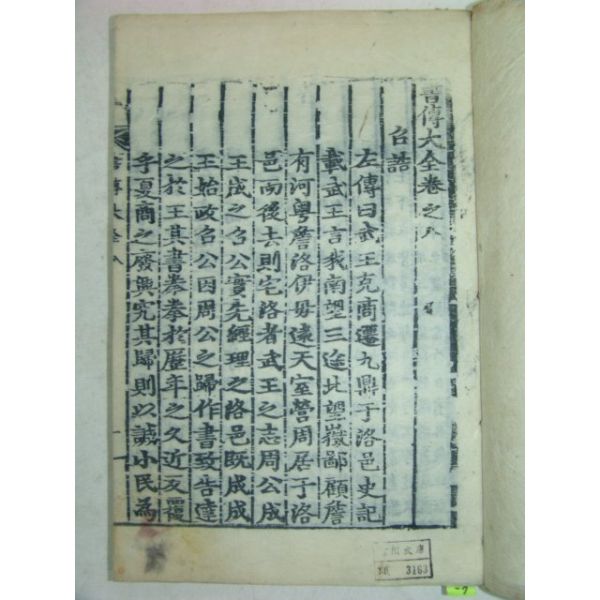 書傳大全卷之八
召誥
左傳曰武王克商遷九鼎于洛邑史記
載武王言我南望三途北望嶽鄙顧詹
有河粤詹洛伊毋遠天室營周居于洛
邑而後去則宅洛者武王之志周公成
王成之召公實先經理之洛邑既成成
王始政召公因周公之歸作書致告達
之於王其書拳拳於歷年之久近反覆
乎夏商之廢興究其歸則以諴小民為
書傳大全八
文庫
3163